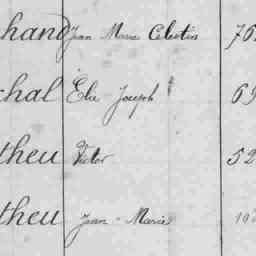 hand Jean Marie Célestin 76
chal Elie Joseph 69
theu Victor 52
theu Jean-Marie